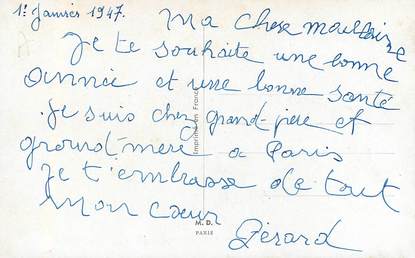 1er Janvier 1947.
Ma chère marraine
Je te souhaite une bonne
année et une bonne santé
Je suis chez grand-père et
grand-mère a Paris
Je t'embrasse de tout
mon cœur
Gérard
Imprimé en France
M. D.
PARIS